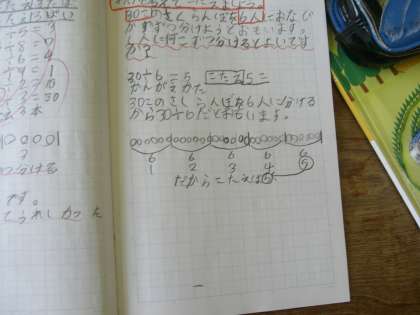 ÷5=
÷8=
÷6=4
÷9=1
30このさくらんぼを6人におなじ
かずずつ分けようとおもいます。
1人に何こずつ分けるとよいです
か?
30÷6=5 こたえ5こ
かんがえかた
30このさくらんぼを6人に分ける
から30÷6だとおもいます。
6 6 6 6 6
1 2 3 4 5
だからこたえは5
分ける
です。
うれしかった